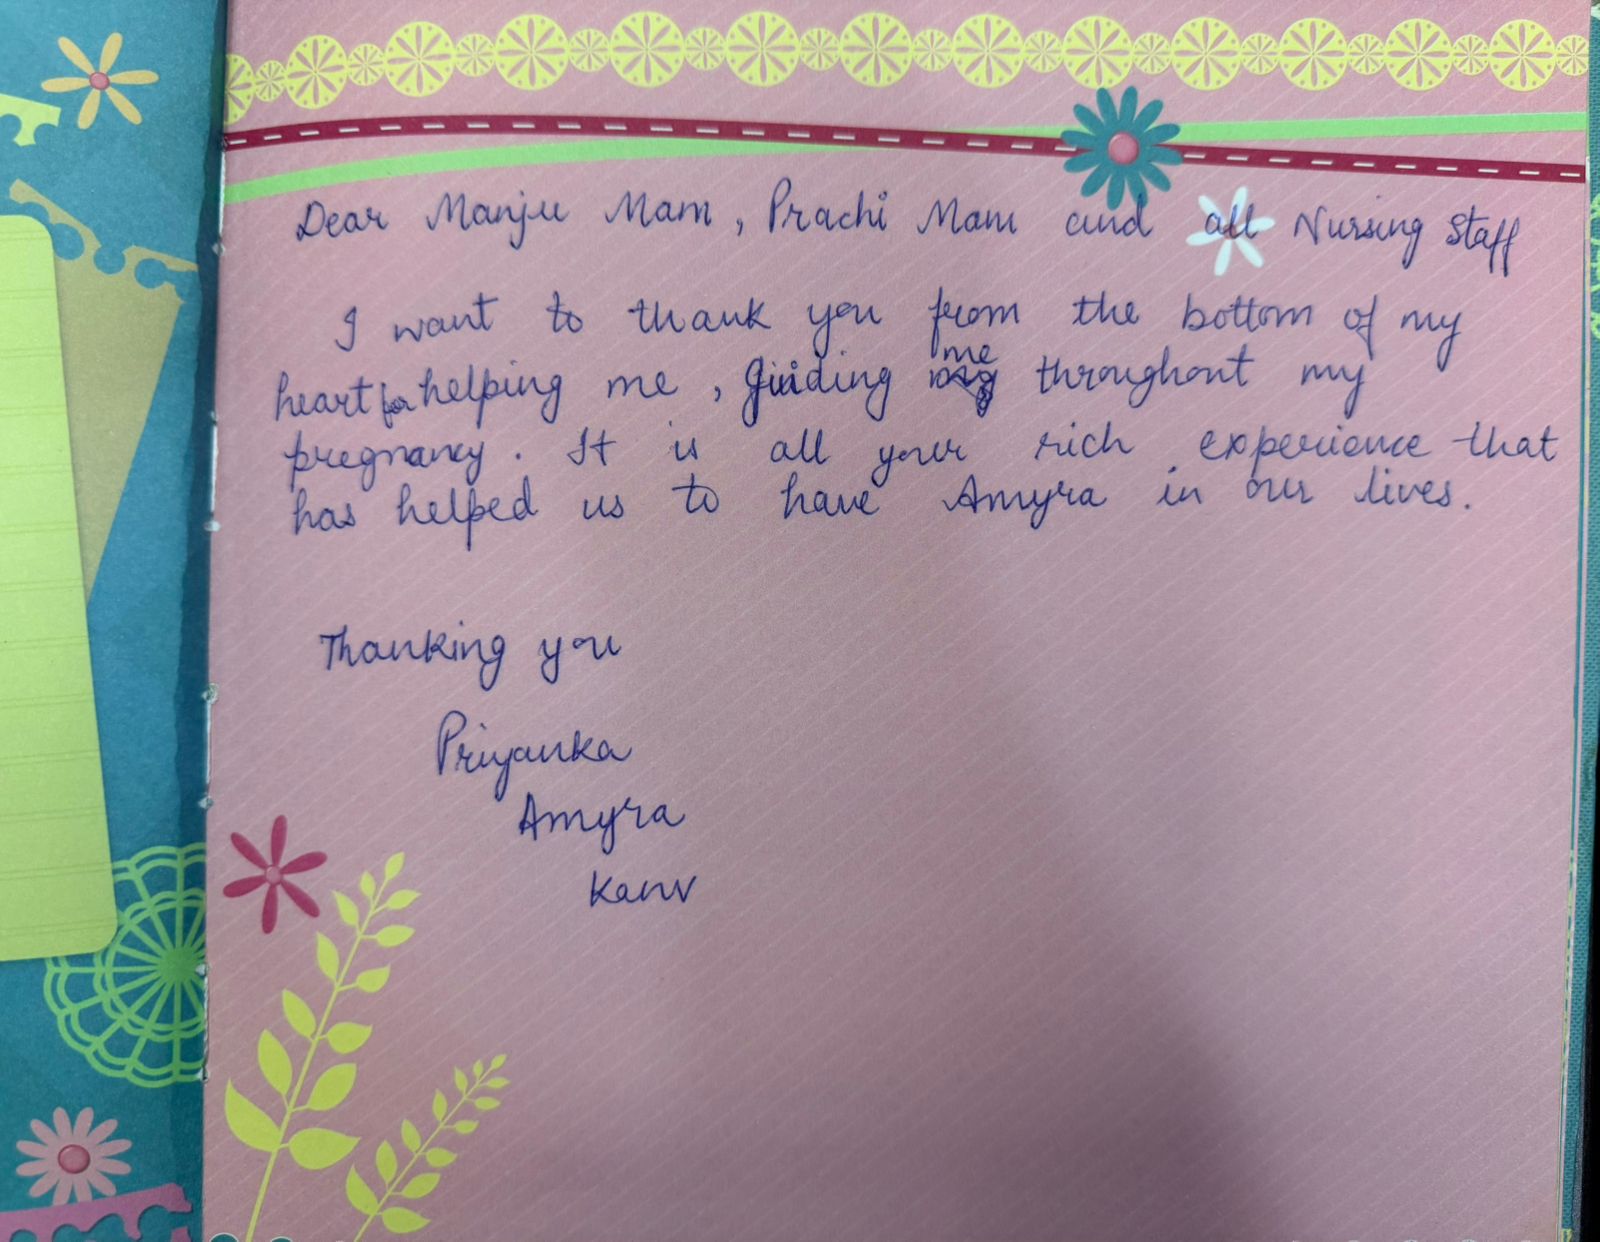 Dear Manju Mam, Prachi Mam and all Nursing Staff
I want to thank you from the bottom of my
heart for helping me, Guiding me throughout my
pregnancy. It is all your rich experience that
has helped us to have Amyra in our lives.
Thanking you
Priyanka
Amyra
Kanv